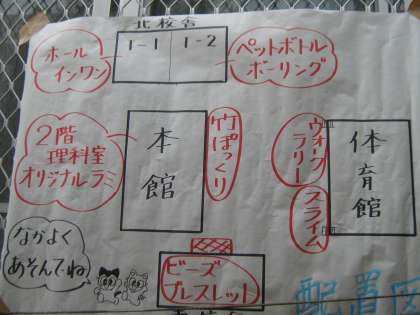 北校舎
1-1 1-2
ホール
インワン
ペットボトル
ボーリング
2階
理科室
オリジナルラミ
本
館
竹ぽっくり
ウォーク
ラリー
スライム
体
育
館
なかよく
あそんでね。
ビーズ
ブレスレット
配置